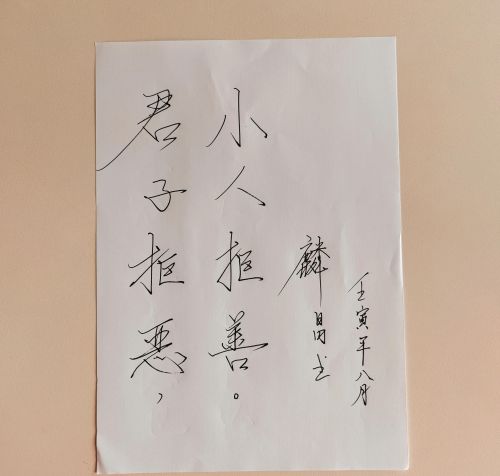 君子拒恶，
小人拒善。
麟昌书
壬寅年八月